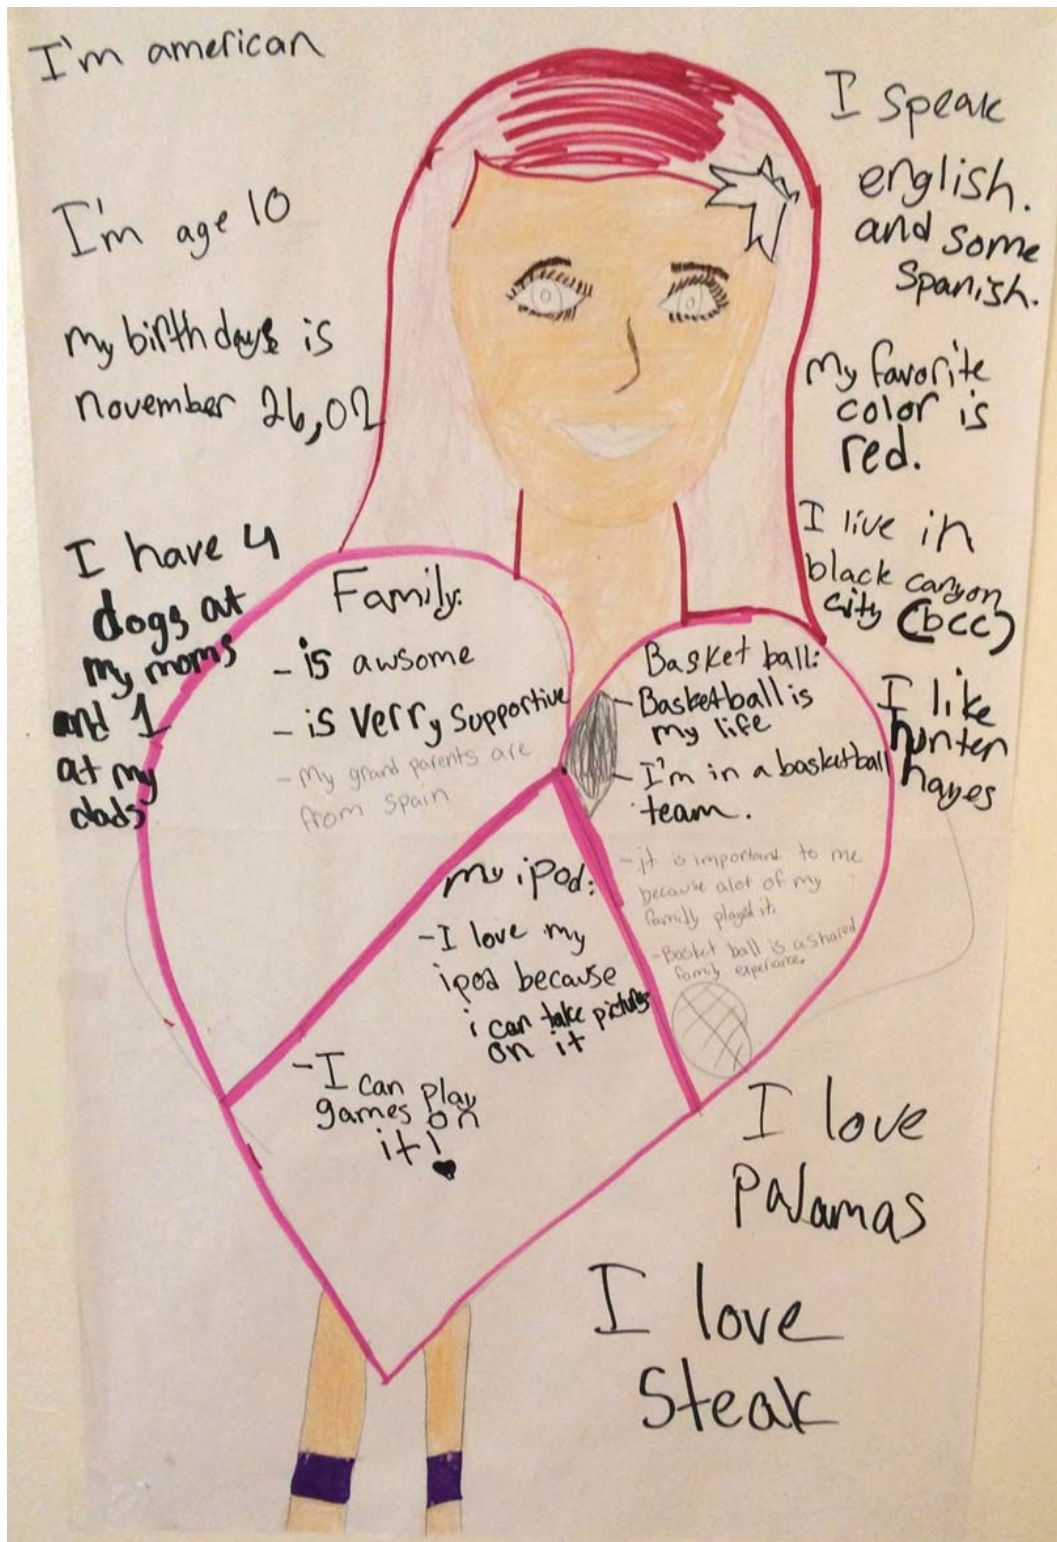 I'm american
I'm age 10
my birthdays is
november 26,02
I have 4
dogs at
my moms
and 1
at my
dads
I speak
english.
and some
Spanish.
My favorite
color is
red.
I live in
black canyon
city (bcc)
I like
hunter
hayes
Family:
- is awsome
- is verry supportive
- My grand parents are
from spain
Basket ball:
- Basketball is
my life
- I'm in a basketball
team.
- it is important to me
because alot of my
familly played it.
- Basket ball is a shared
family experience.
my ipod:
- I love my
ipod because
i can take pictures
on it
- I can play
games on
it!
I love
Pajamas
I love
Steak